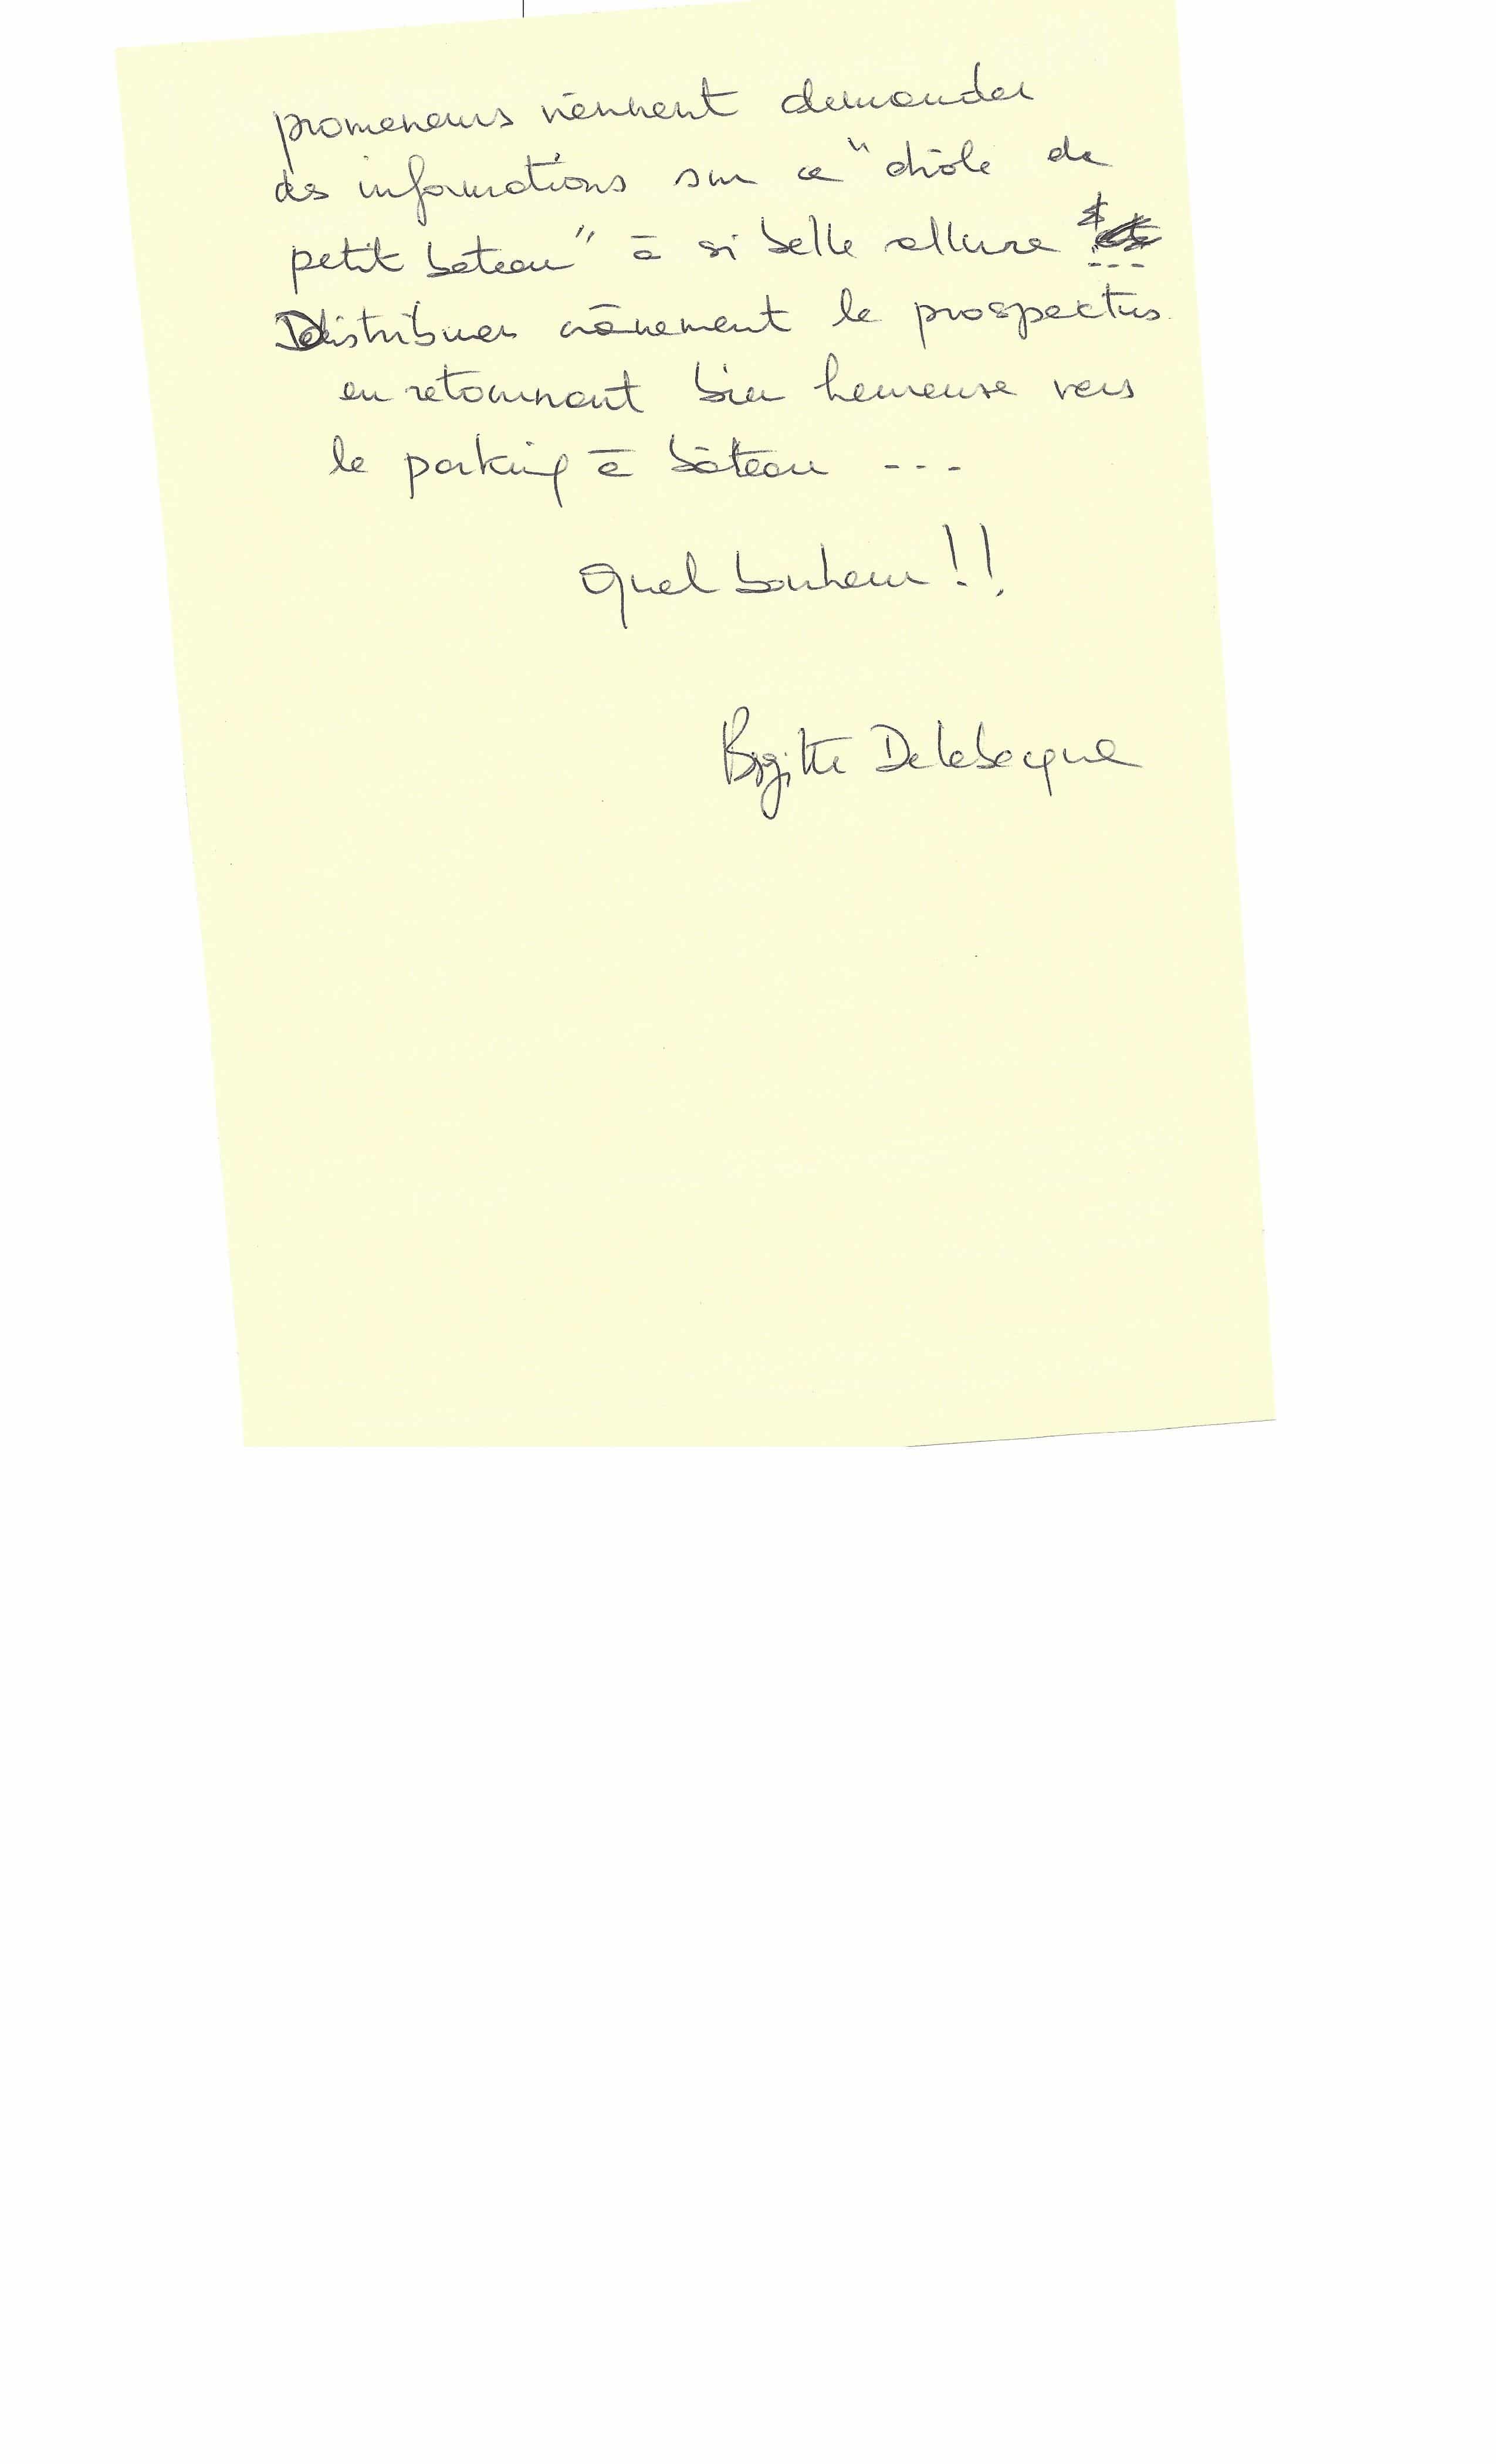 promeneurs viennent demander
des informations sur ce "drôle de
petit bateau" à si belle allure ...
Distribuer crânement le prospectus
en retournant bien heureuse vers
le parking à bâteau ---
Quel bonheur !!
Brgitte Delebecque